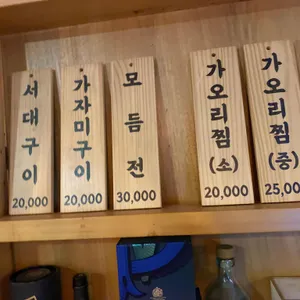 서대구이
20,000
가자미구이
20,000
모듬전
30,000
가오리찜(소)
20,000
가오리찜(중)
25,00